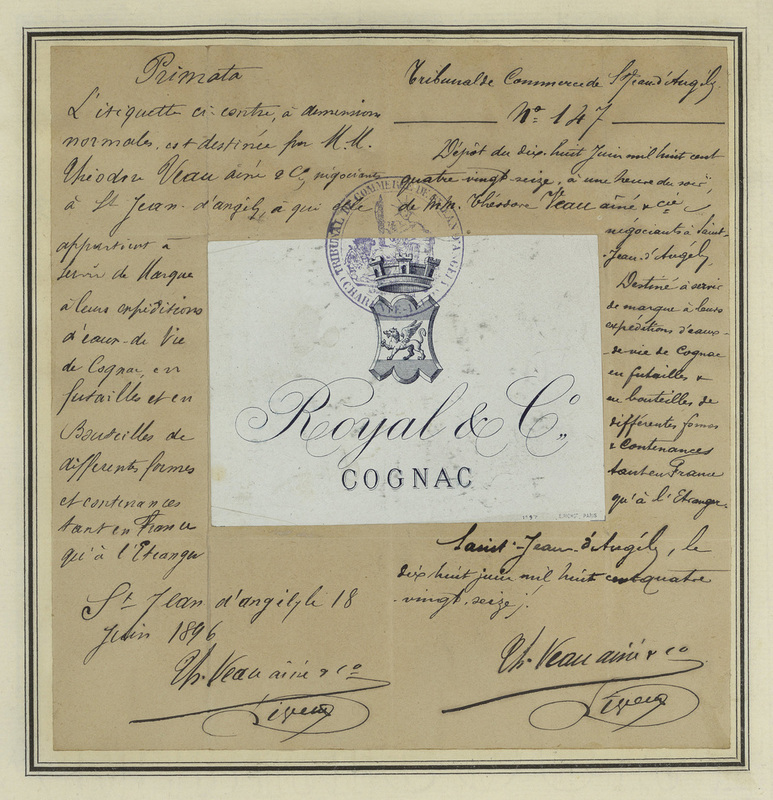 Primata
L'étiquette ci-contre, à dimensions
normales, est destinée par M.M.
Théodore Veau ainé & Cie négociants
à St Jean d'angély, à qui elle
appartient à
servir de Marque
à leurs expéditions
d'eaux-de Vie
de Cognac, en
futailles et en
Bouteilles de
differents formes
et contenances
tant en France
qu'à l'Etranger
St Jean d'angély le 18
Juin 1896
Th. Veau ainé & co
Tribunal de Commerce de St Jean d'Angély
No 147
Dépôt du dix huit Juin mil huit cent
quatre vingt seize, à une heure du soir,
de MM. Théodore Veau ainé & cie
négociants à Saint-
Jean-d'Angély,
Destiné à servir
de marque à leurs
expéditions d'eaux-
de-vie de Cognac
en futailles &
en bouteilles de
différentes formes
& contenances
tant en France
qu'à l'Etranger.
Saint-Jean-d'Angély, le
dix huit juin mil huit cent quatre
vingt seize.
Th. Veau ainé & co
TRIBUNAL DE COMMERCE DE
Royal & Co
COGNAC